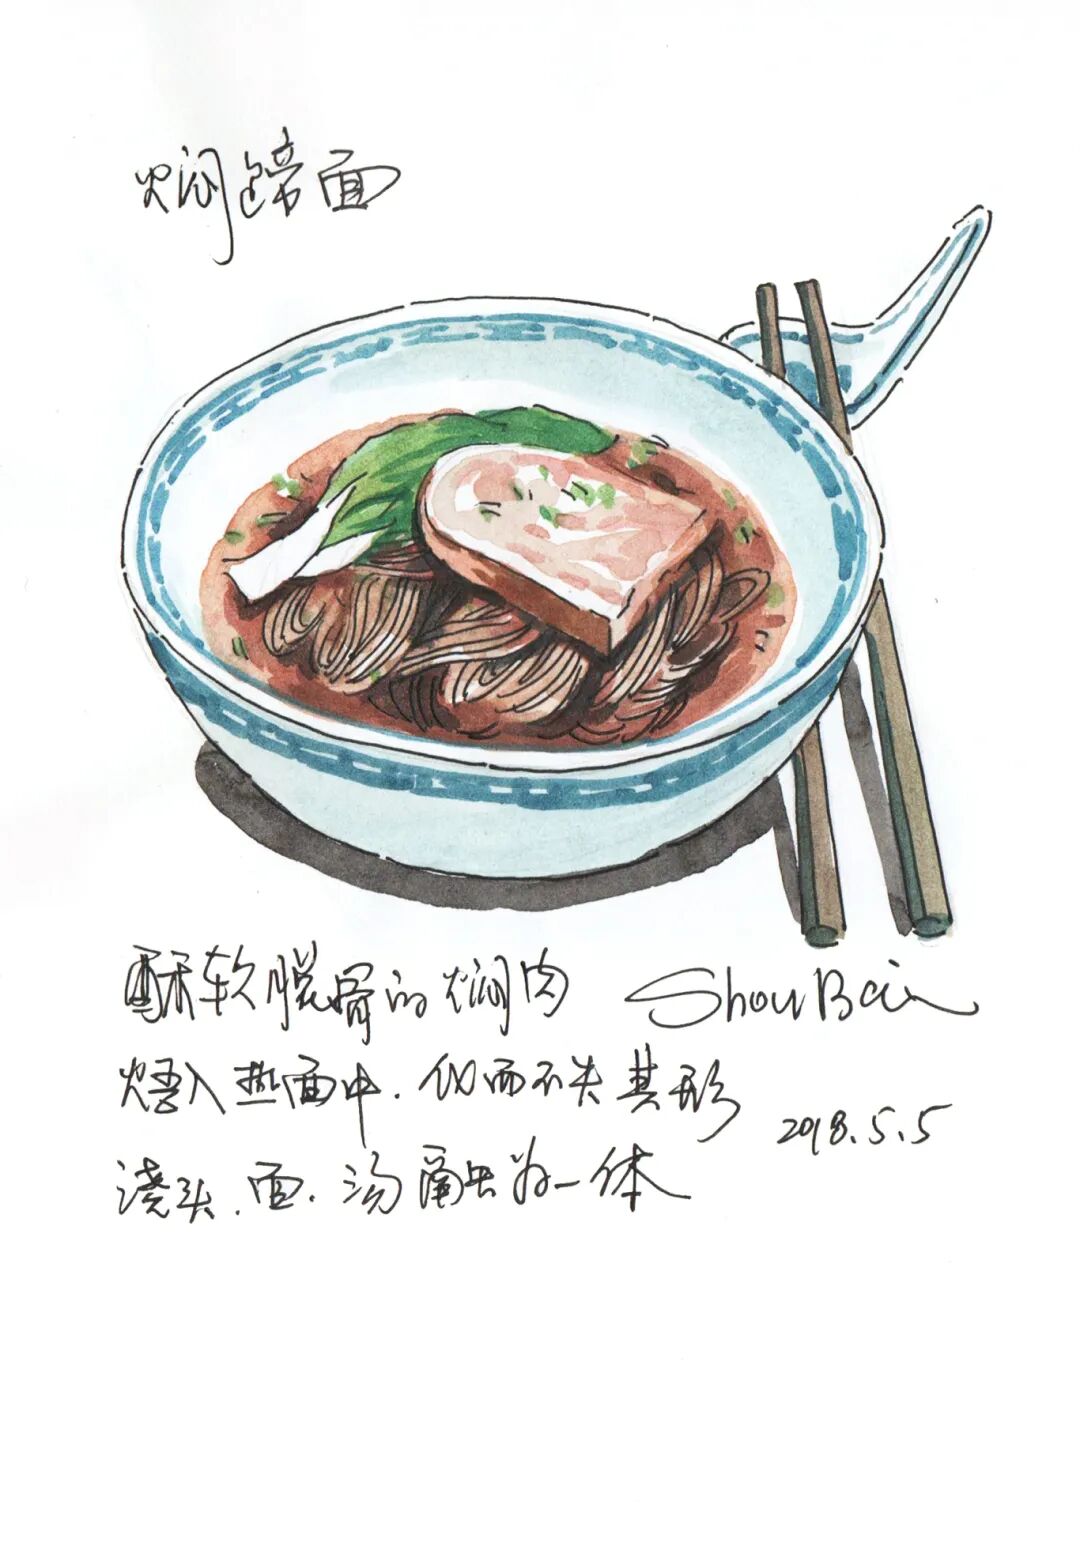 焖蹄面
酥软脱骨的焖肉
ShouBai
焐入热面中.化而不失其形
2018.5.5
浇头.面.汤融为一体